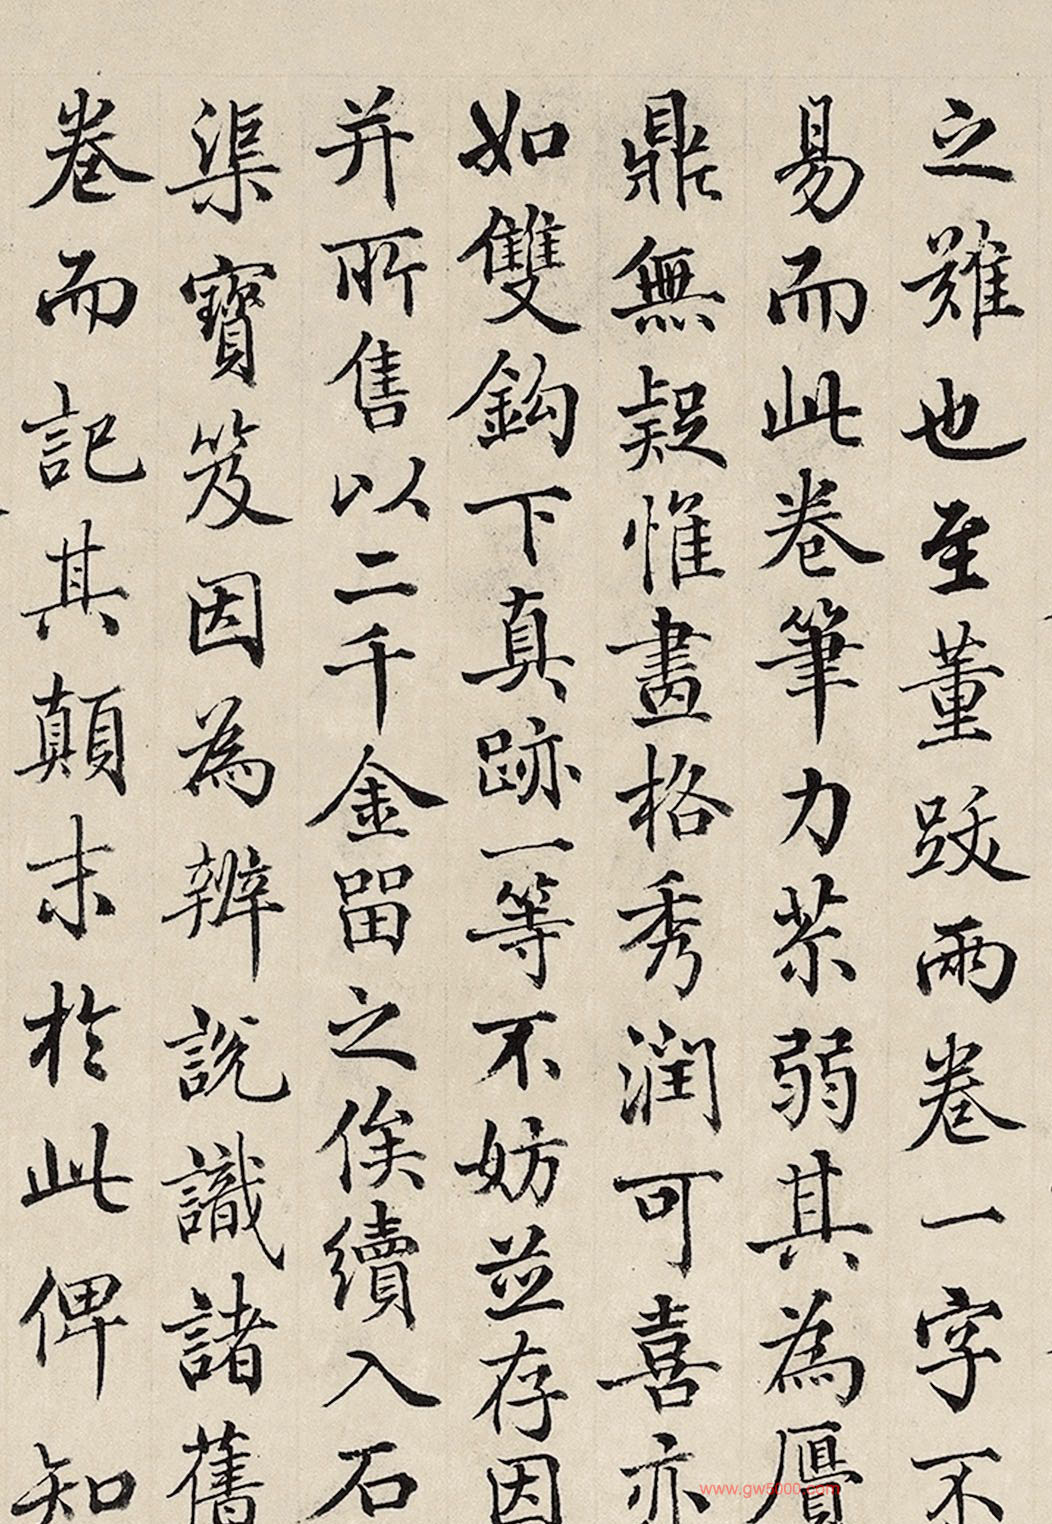 之難也至董跋兩卷一字不
易而此卷筆力苶弱其為贗
鼎無疑惟畫格秀潤可喜亦
如雙鈎下真跡一等不妨並存因
并所售以二千金留之俟續入石
渠寶笈因為辨說識諸舊
卷而記其顛末於此俾知
www.gw5000.com